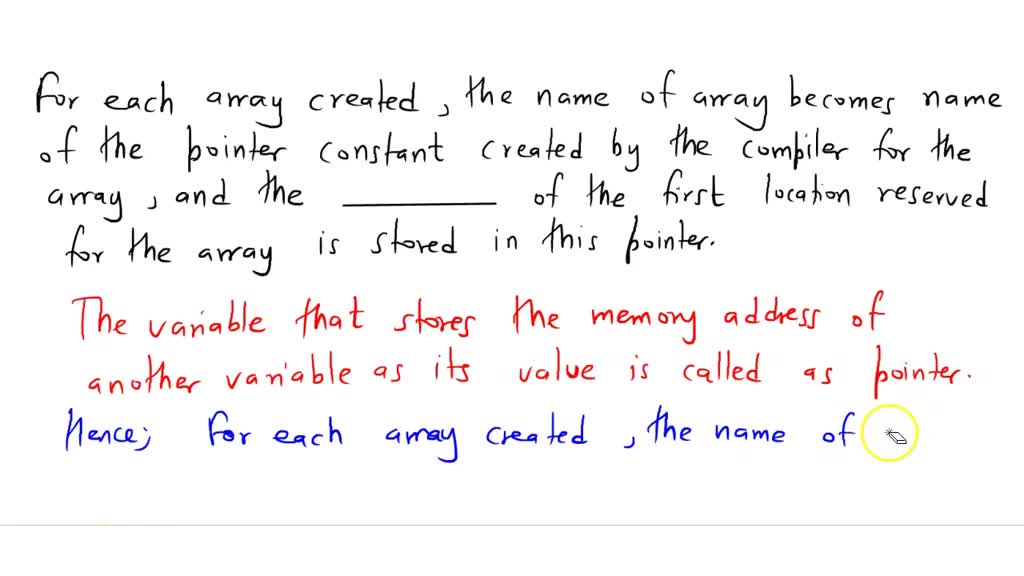 For each array created, the name of array becomes name
of the pointer constant created by the compiler for the
array, and the __________ of the first location reserved
for the array is stored in this pointer.
The variable that stores the memory address of
another variable as its value is called as pointer.
Hence; For each array created, the name of